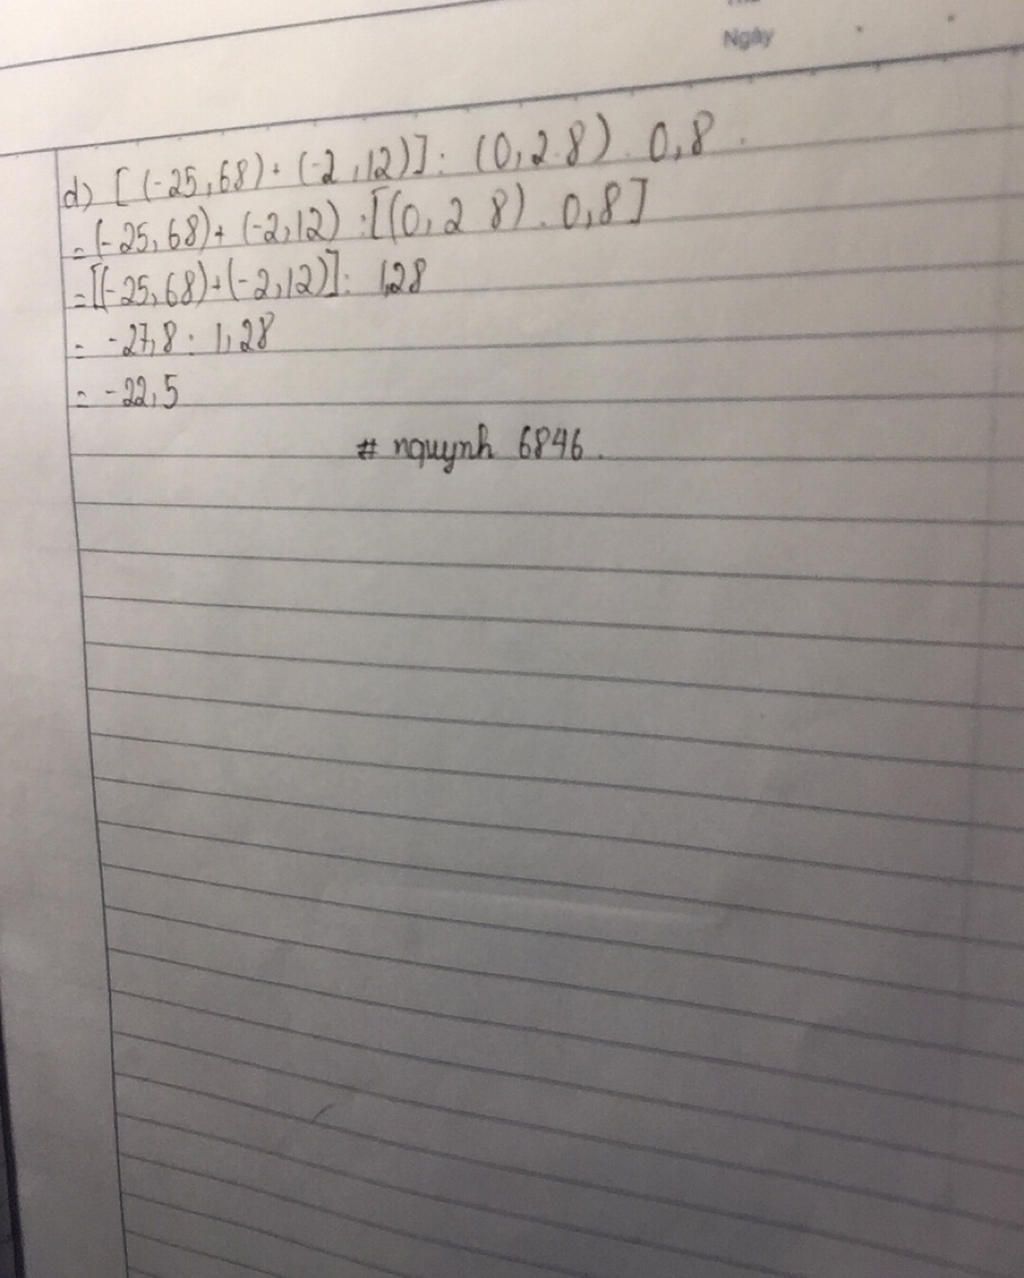 Ngày
d) [(-25,68) + (-2,12)] : (0,2.8) . 0,8.
= (-25,68) + (-2,12) : [(0,2 8) . 0,8]
= [(-25,68) + (-2,12)] : 1,28
= -27,8 : 1,28
= -22,5
# nquynh 6846.